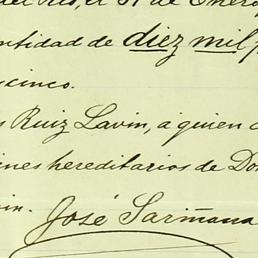 del Río, el 31 de Enero
cantidad de diez mil
cinco.
Ruiz Lavin, a quien
hereditarios de Don
José Sarmana